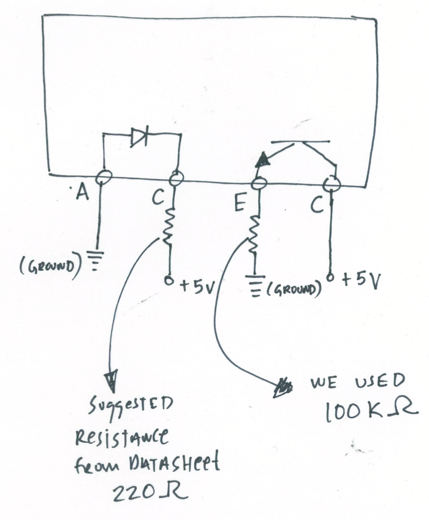 A
C
E
C
(GROUND)
+5V
(GROUND)
+5V
SUGGESTED
RESISTANCE
from DATASHEET
220Ω
WE USED
100KΩ